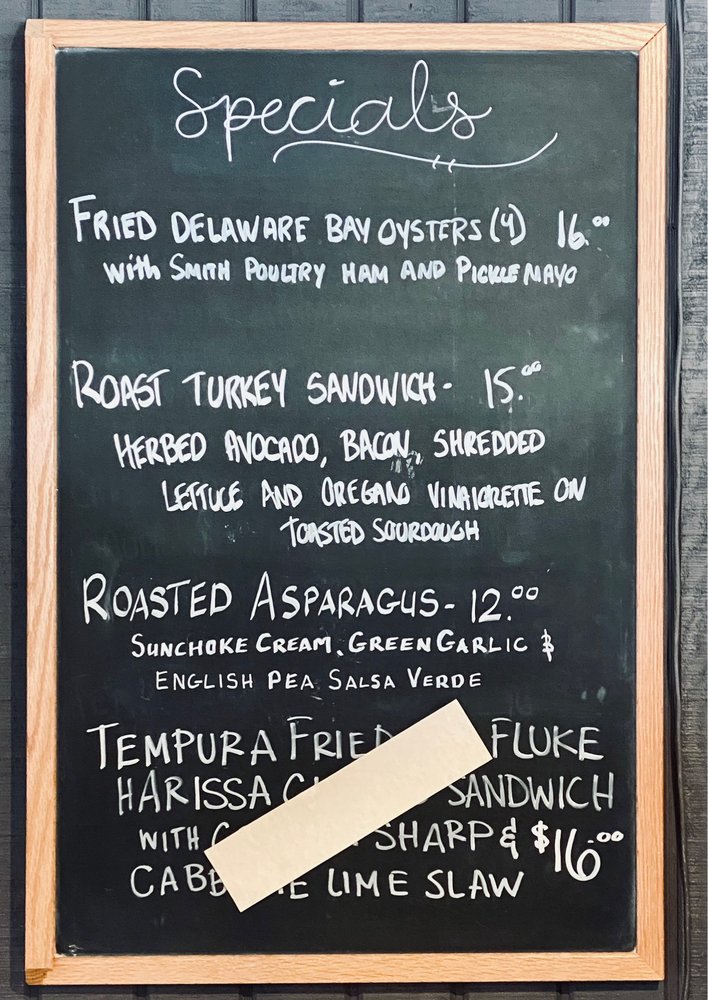 Specials
FRIED DELAWARE BAY OYSTERS (4) 16.00
with SMITH POULTRY HAM AND PICKLE MAYO
ROAST TURKEY SANDWICH - 15.00
HERBED AVOCADO, BACON, SHREDDED
LETTUCE AND OREGANO VINAIGRETTE ON
TOASTED SOURDOUGH
ROASTED ASPARAGUS - 12.00
SUNCHOKE CREAM, GREEN GARLIC &
ENGLISH PEA SALSA VERDE
TEMPURA FLUKE
HARISSA SANDWICH
WITH SHARP & $16.00
LIME SLAW